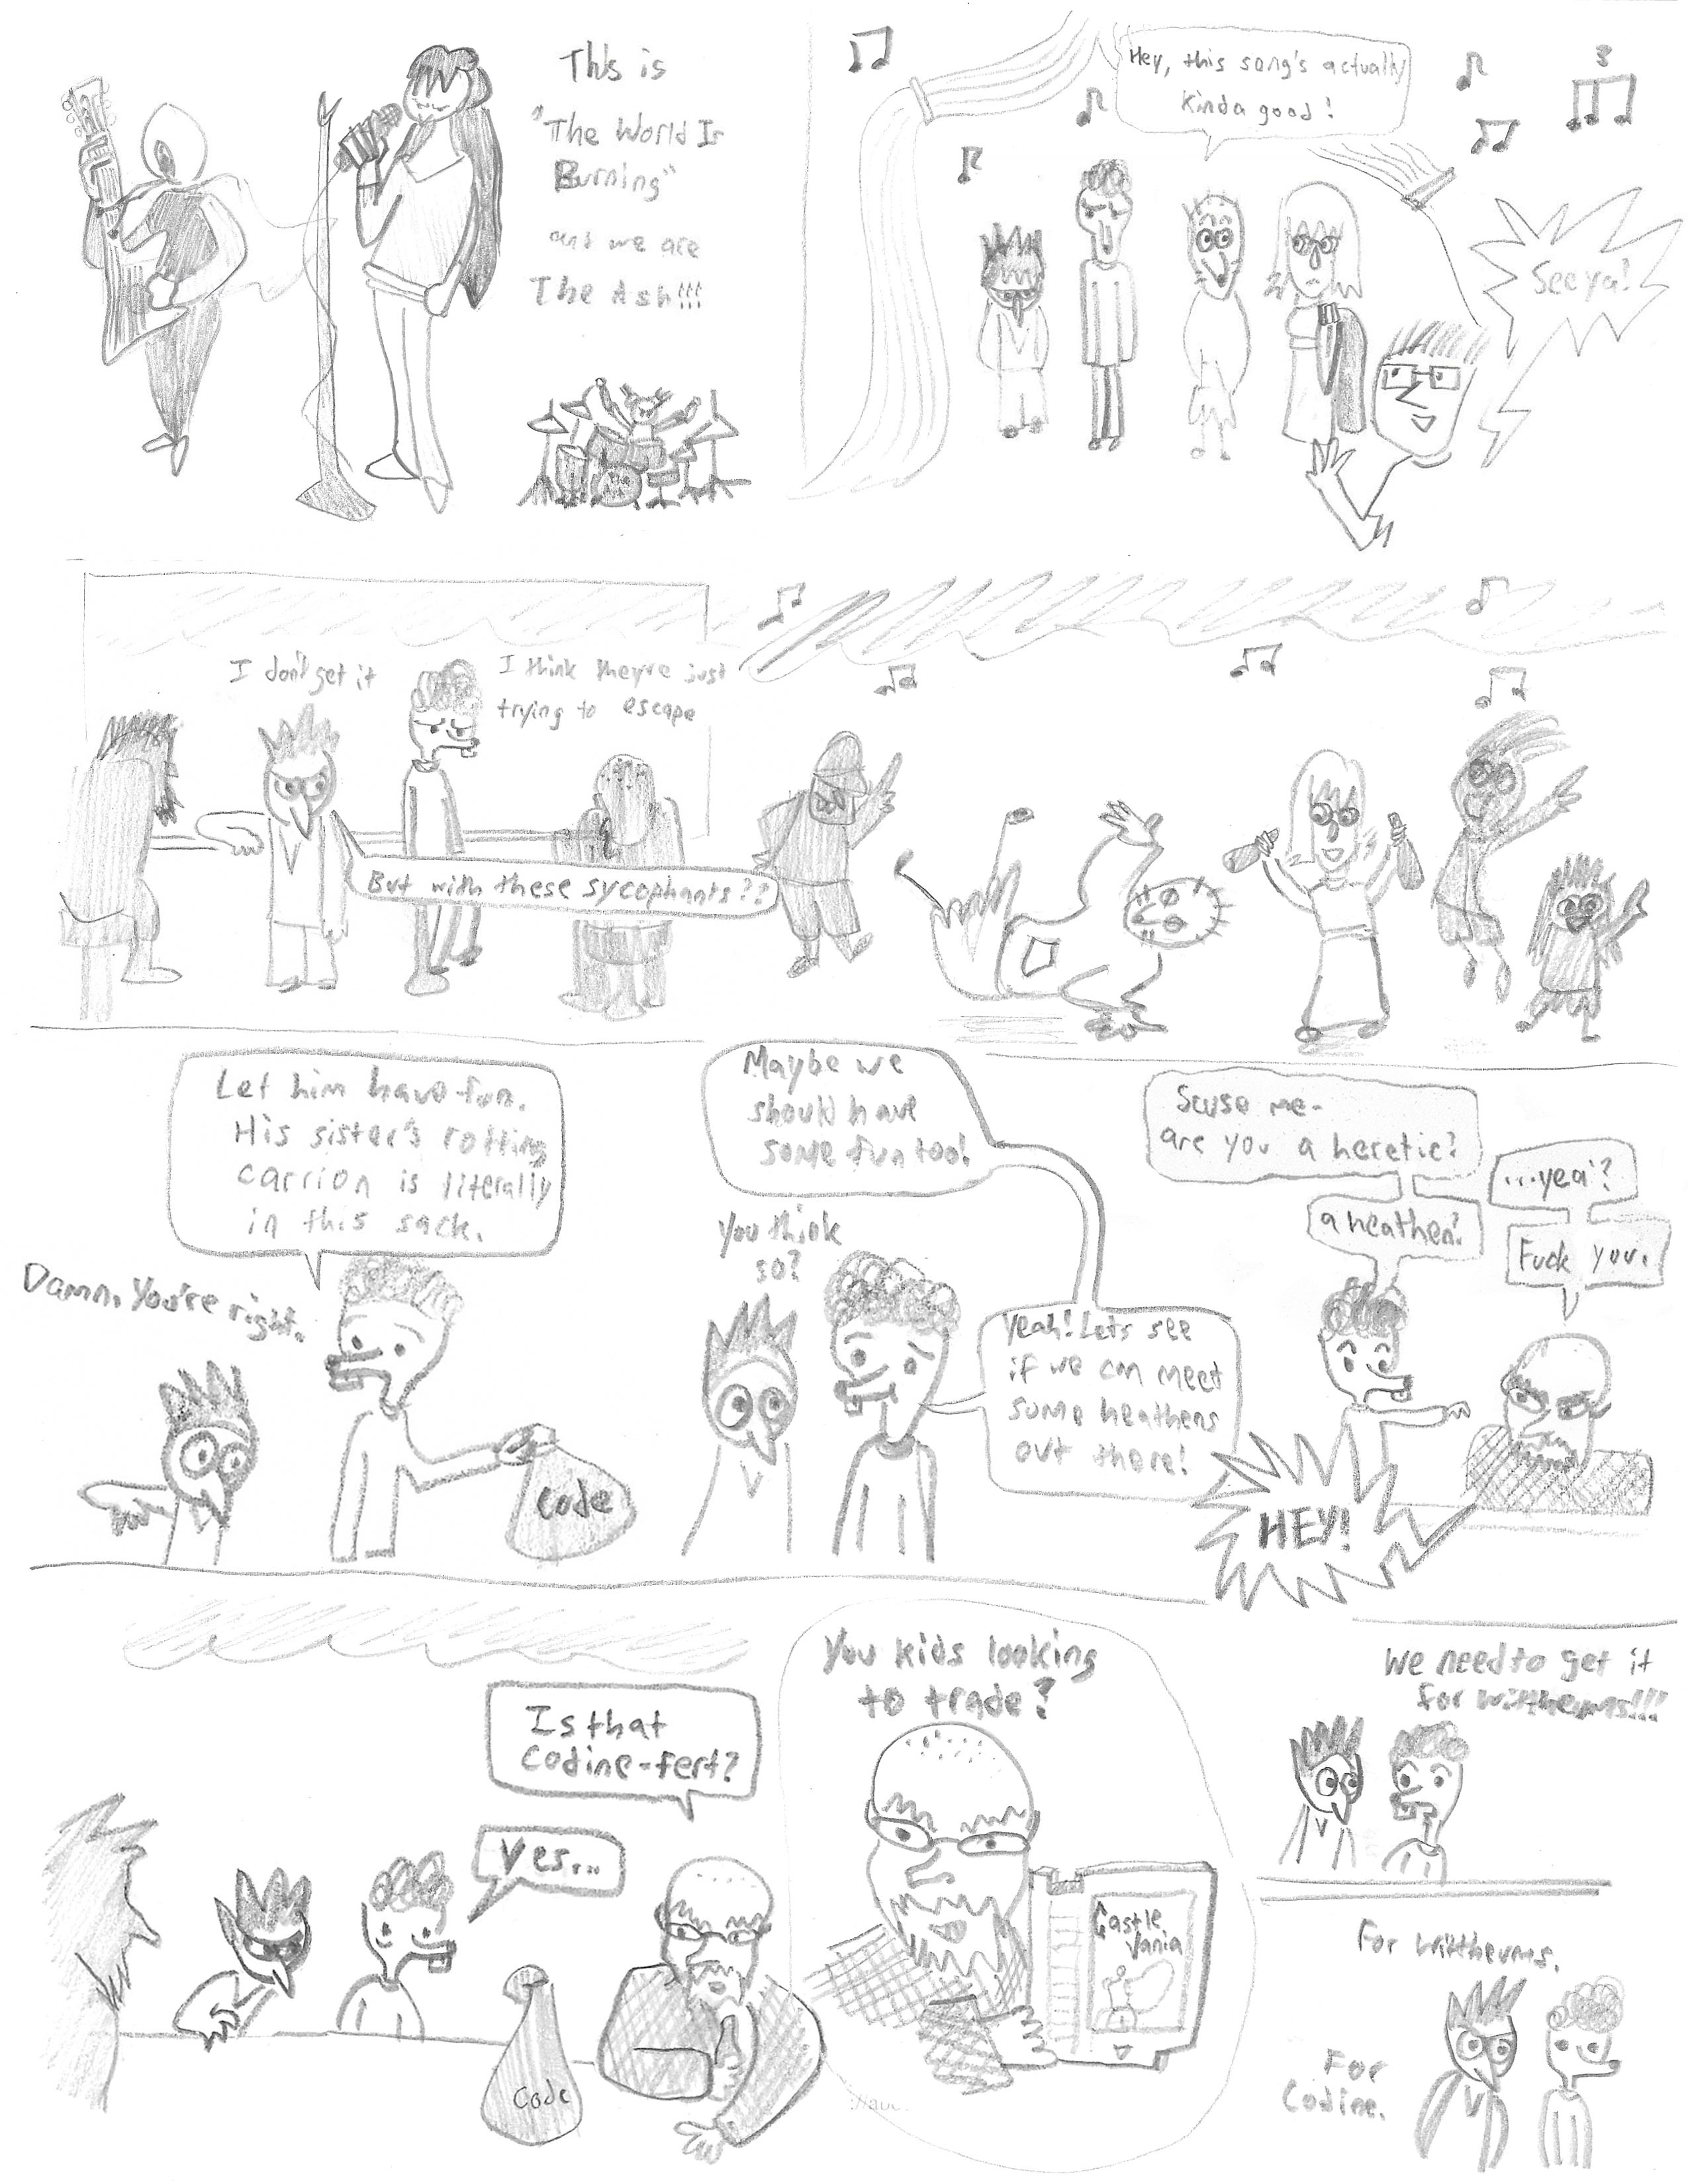 This is
"The World Is
Burning"
and we are
The Ash!!!
Hey, this song's actually
kinda good!
3
See ya!
I don't get it
I think they're just
trying to escape
But with these sycophants??
Let him have fun.
His sister's rotting
carrion is literally
in this sack.
Damn. You're right.
Code
Maybe we
should have
some fun too!
You think
so?
Yeah! Lets see
if we can meet
some heathens
out there!
Scuse me-
are you a heretic?
a heathen?
...yea'?
Fuck you.
HEY!
Is that
Codine-fert?
Yes...
Code
You kids looking
to trade?
Castle
Vania
We need to get it
for Wiitheums!!!
For Wiitheums.
For
Codine.